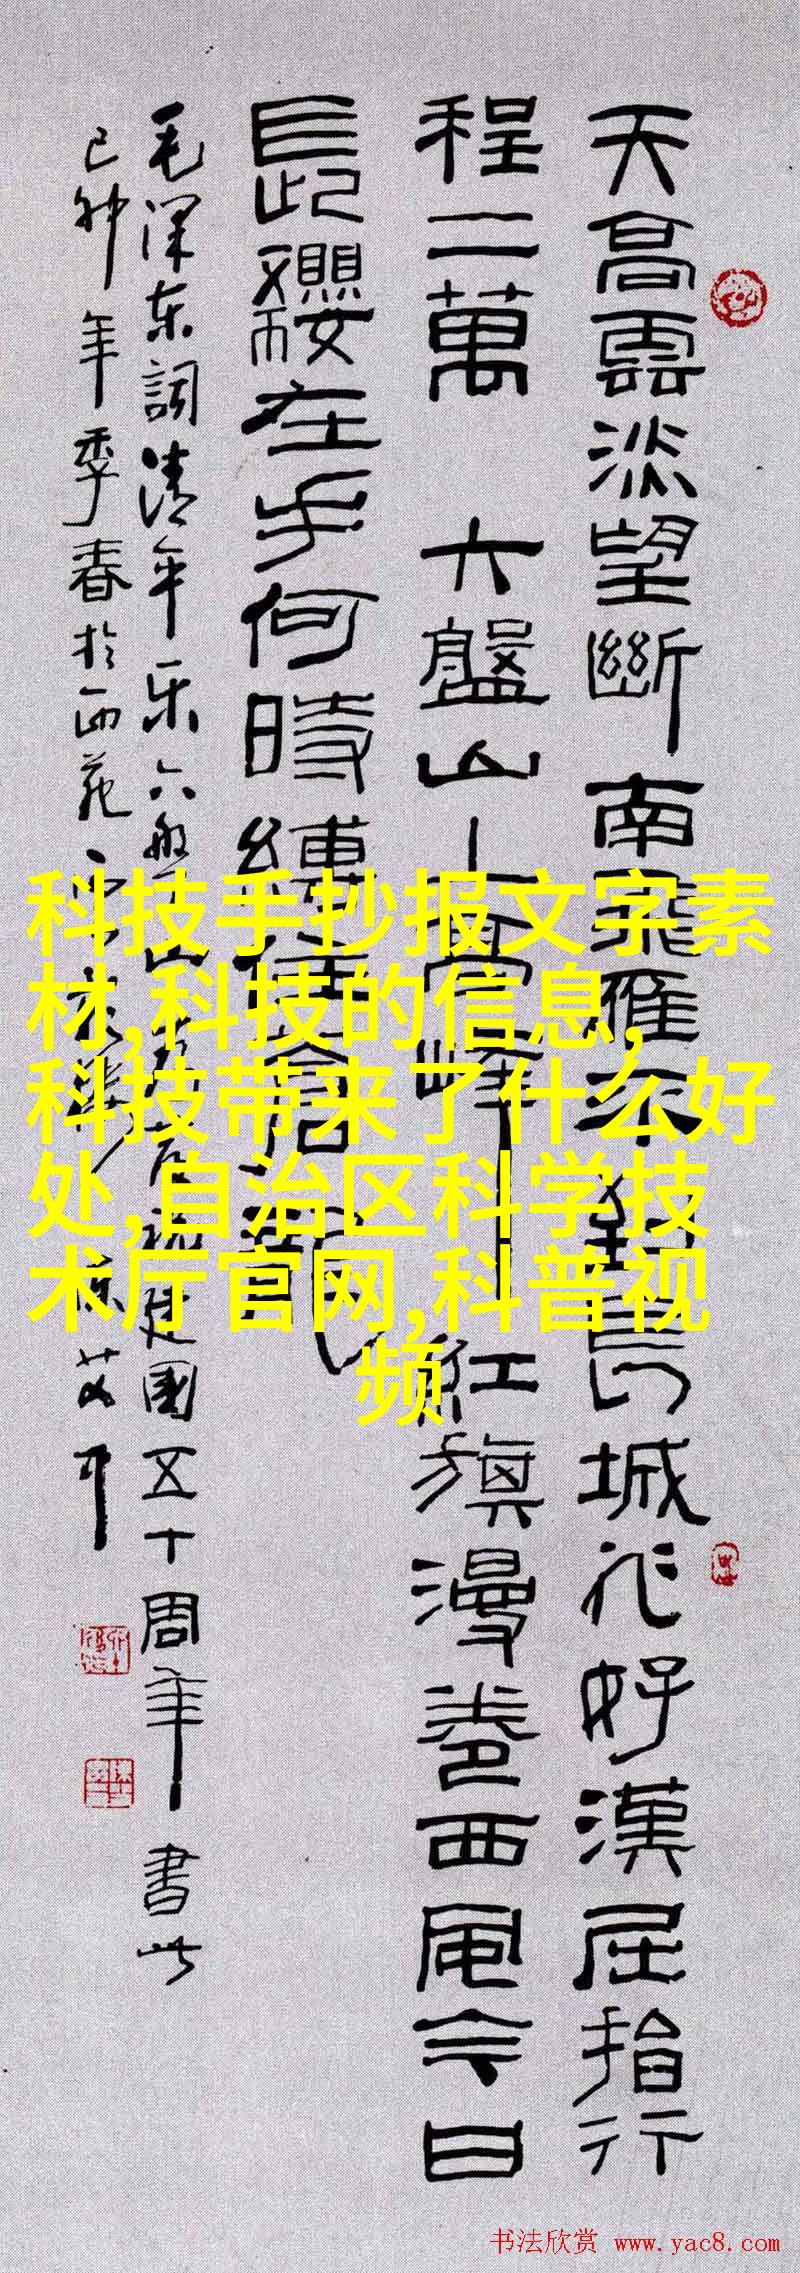 天高雲淡望斷南飛雁不到長城非好漢屈指行
程二萬 六盤山上高峰 紅旗漫卷西風今日
長纓在手何時縛住蒼龍
毛澤东詞清平乐六盤山 祝建國五十周年書此
己卯年季春於西苑
科技手抄报文字素
材,科技的信息,
科技带来了什么好
处,自治区科学技
术厅官网,科普视
频
书法欣赏 www.yac8.com